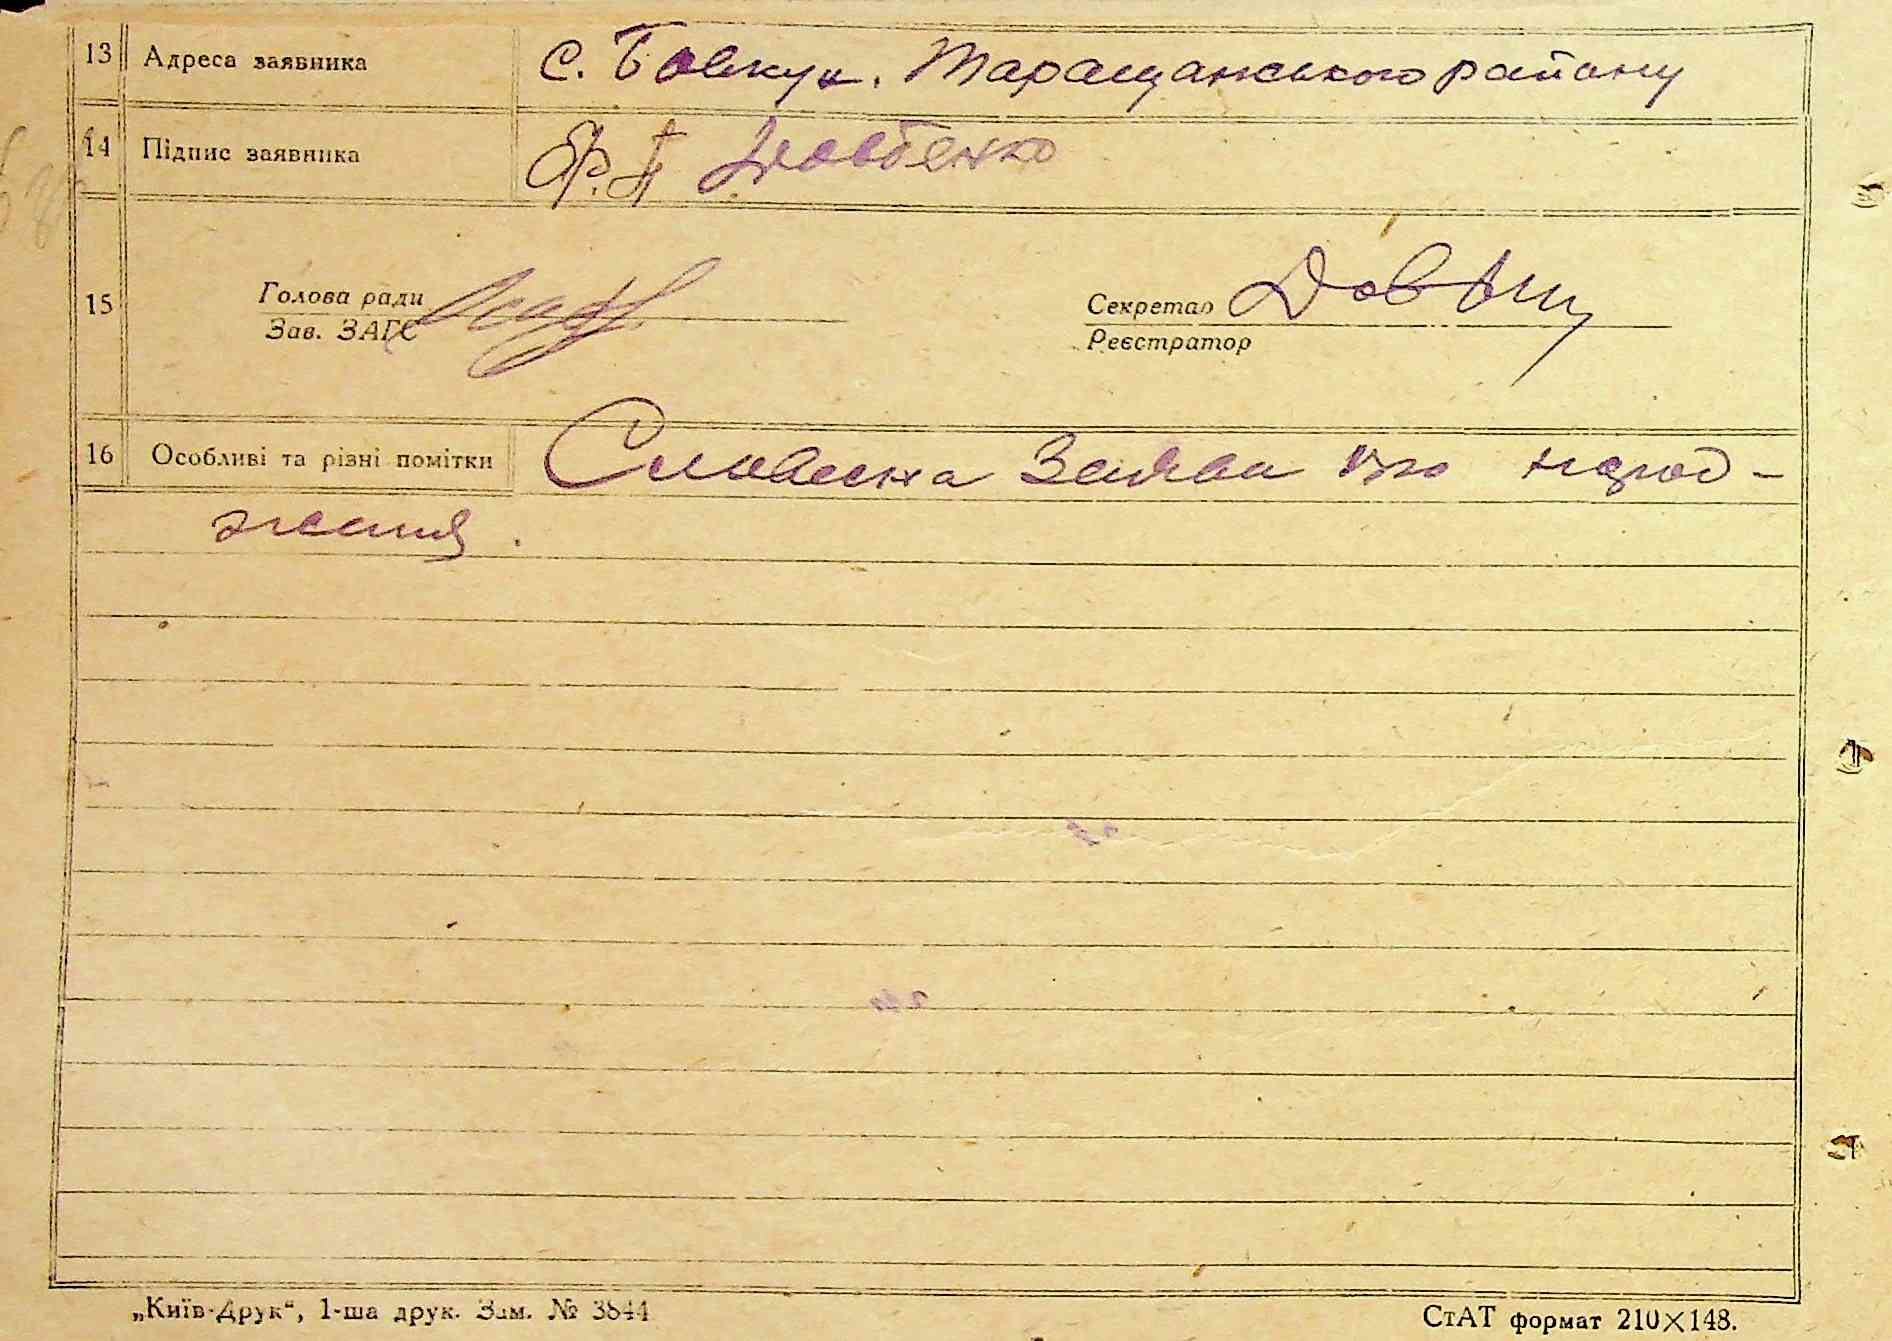 13 Адреса заявника с. Бовкун. Таращанського району
14 Підпис заявника Яр. П Довбенко
15 Голова ради Секретар
Зав. ЗАГС Реєстратор
16 Особливі та різні помітки Словесна Заява про народ-
ження.
„Київ-Друк“, 1-ша друк. Зам. № 3844 СтАТ формат 210×148.